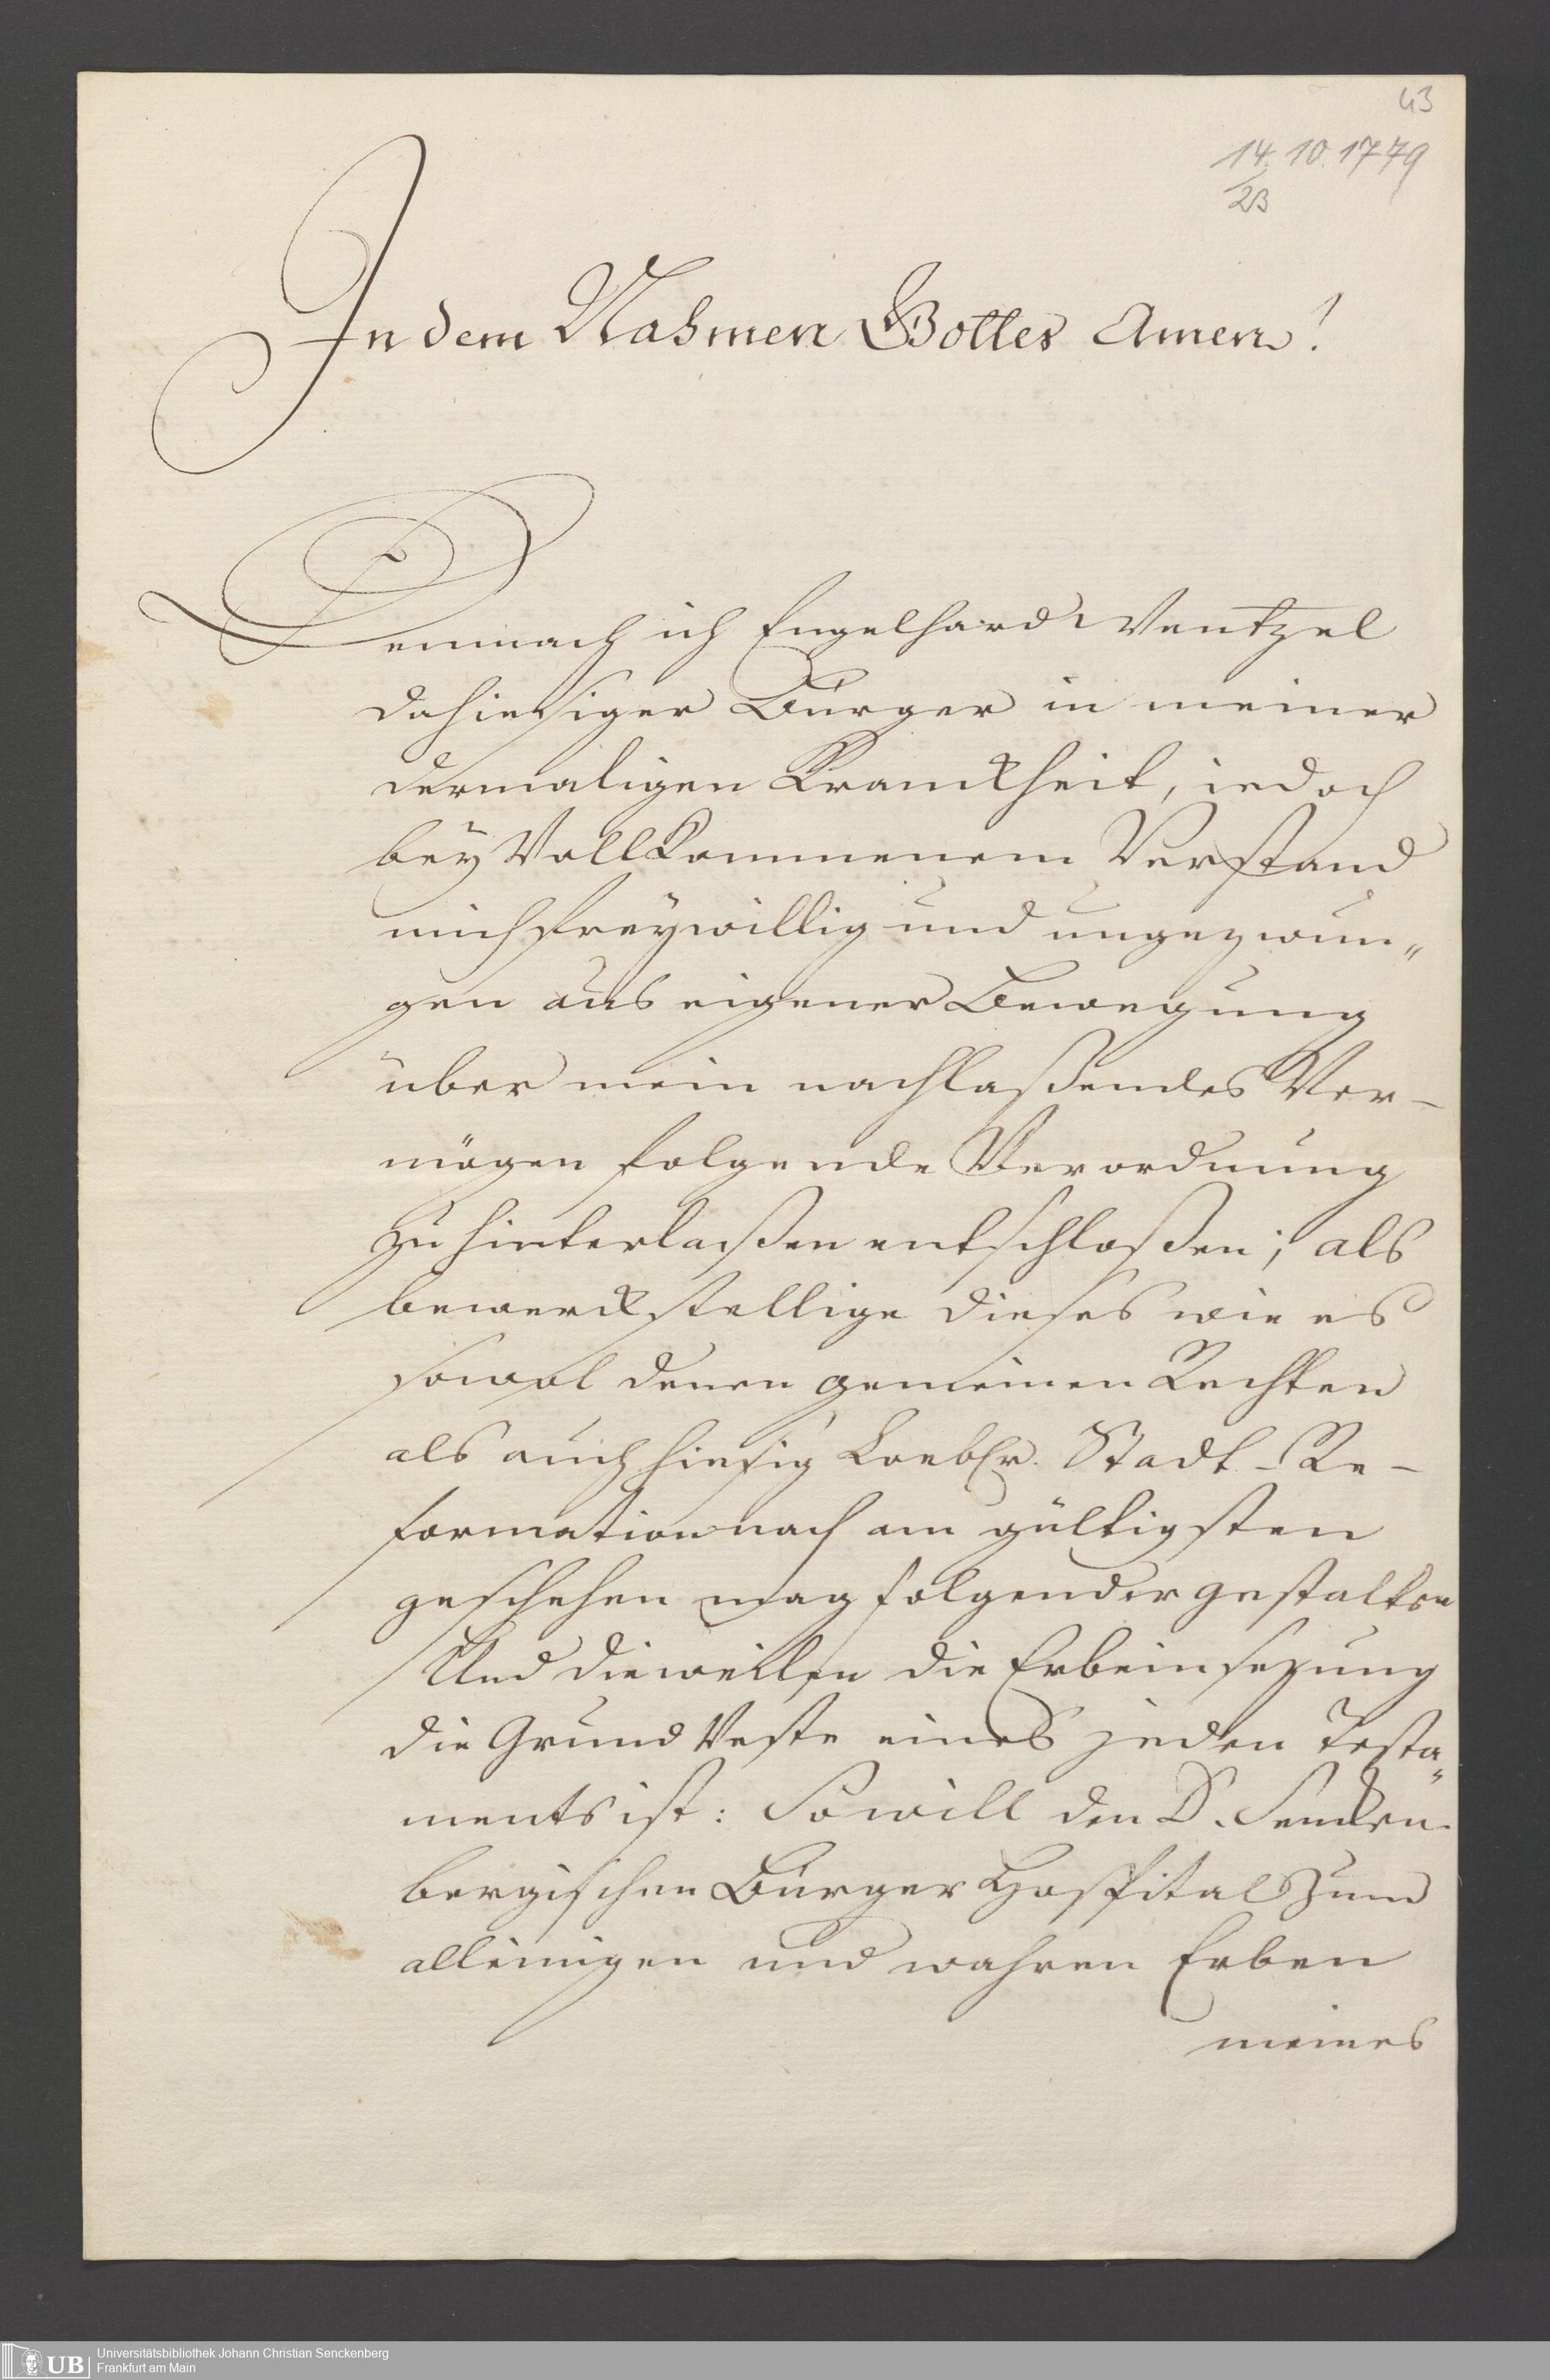 43
14. 10. 1779
23
In dem Nahmen Gottes Amen!
Demnach ich Engelhard Wentzel
dahiesiger Bürger in meiner
dermaligen Kranckheit, iedoch
bey Vollkommenem Verstand
mich freywillig und ungezwun„
gen aus eigener Bewegung
über mein nachlaßendes Ver-
mögen folgende Verordnung
zu hinterlaßen entschloßen; als
bewerckstellige dieses wie es
sowol denen gemeinen Rechten
als auch hiesig Loebl. Stadt-Re-
formation nach am gültigsten
geschehen mag folgender gestalten
Und dieweillen die Erbeinsezung
die Grund Veste eines jeden Testa„
ments ist: So will den D. Sencken-
bergischen Bürger Hospital zum
alleinigen und wahren Erben
meines
UB
Universitätsbibliothek Johann Christian Senckenberg
Frankfurt am Main